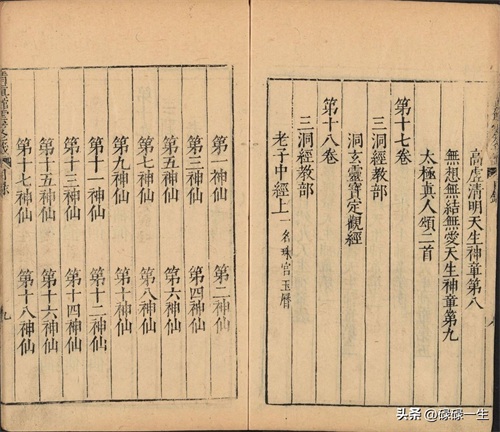 高虛清明天生神章第八
無想無結無愛天生神章第九
太極真人頌二首
第十七卷
三洞經教部
洞玄靈寶定觀經
第十八卷
三洞經教部
老子中經上 一名珠宮玉曆
第一神仙 第二神仙
第三神仙 第四神仙
第五神仙 第六神仙
第七神仙 第八神仙
第九神仙 第十神仙
第十一神仙 第十二神仙
第十三神仙 第十四神仙
第十五神仙 第十六神仙
第十七神仙 第十八神仙
九
头条 @碌碌一生